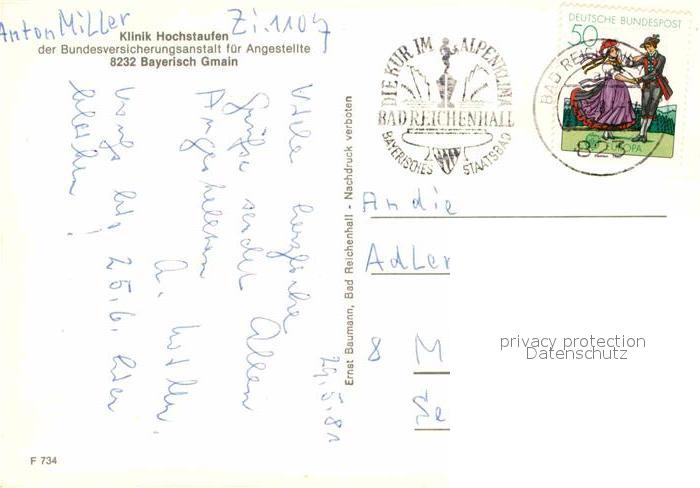 Anton Miller Zi. 1104
Klinik Hochstaufen
der Bundesversicherungsanstalt für Angestellte
8232 Bayerisch Gmain
DIE KUR IM ALPENKLIMA
BAD REICHENHALL
BAYERISCHES STAATSBAD
DEUTSCHE BUNDESPOST
50
EUROPA
BAD REIC
823
29.5.81
Viele herzliche
Grüße sendet Allen
Angestellten
A. Miller.
25.6.
Ernst Baumann, Bad Reichenhall - Nachdruck verboten
An die
Adler
8 M
privacy protection
Datenschutz
F 734